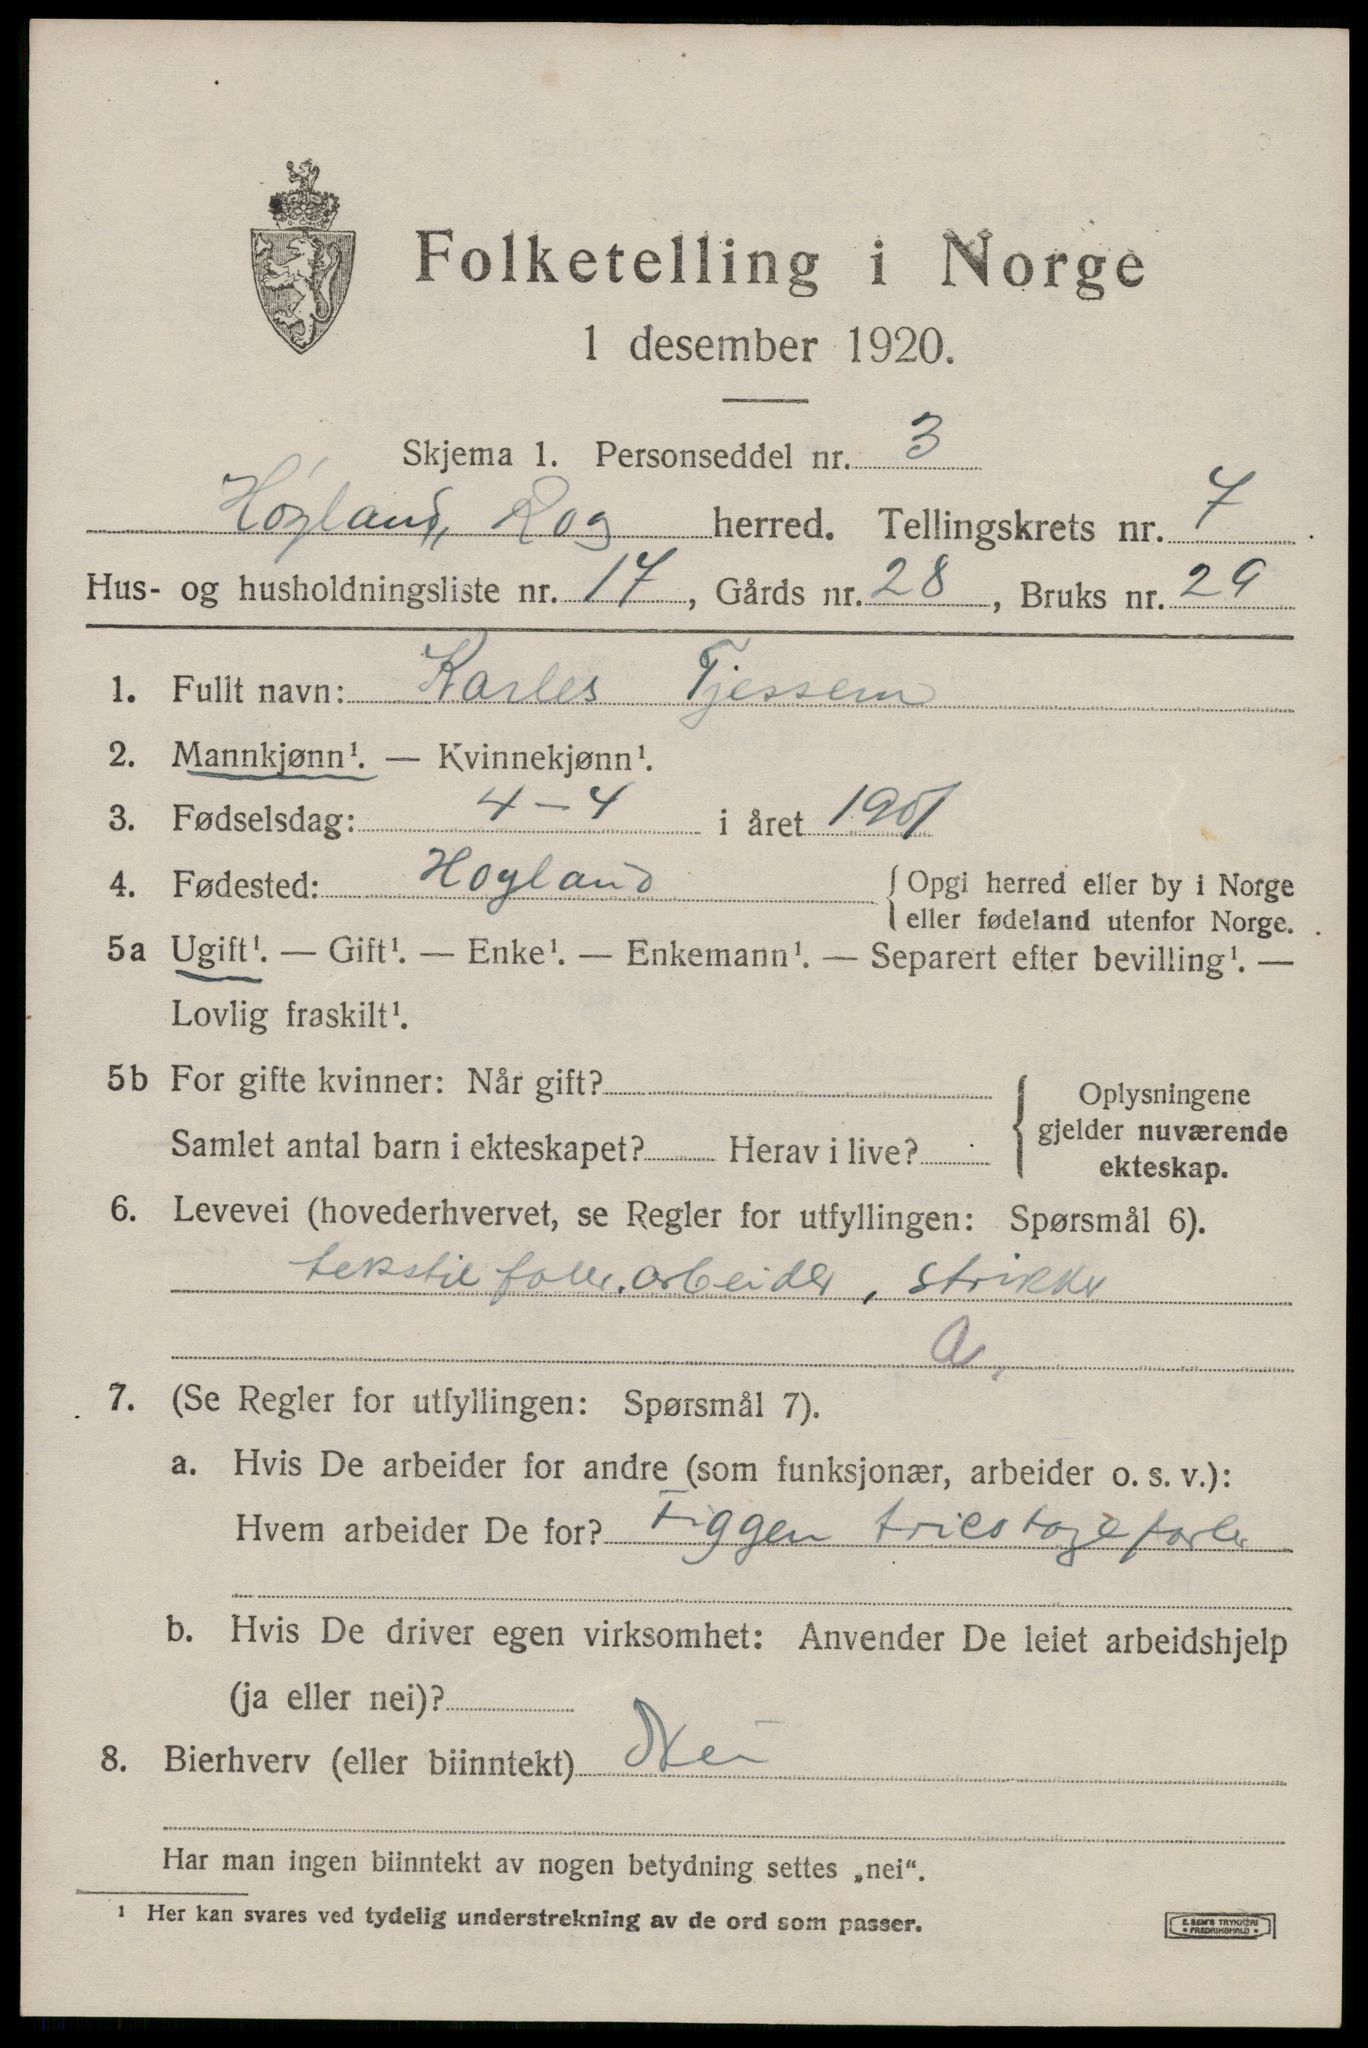 Folketelling i Norge
1 desember 1920.
Skjema 1. Personseddel nr. 3
Høyland, Rog herred. Tellingskrets nr. 7
Hus- og husholdningsliste nr. 17, Gårds nr. 28, Bruks nr. 29
1. Fullt navn: Karles Tjessem
2. Mannkjønn¹. — Kvinnekjønn¹.
3. Fødselsdag: 4-4 i året 1901
4. Fødested: Hoyland {Opgi herred eller by i Norge
eller fødeland utenfor Norge.
5a Ugift¹. — Gift¹. — Enke¹. — Enkemann¹. — Separert efter bevilling¹. —
Lovlig fraskilt¹.
5b For gifte kvinner: Når gift? { Oplysningene
gjelder nuværende
Samlet antal barn i ekteskapet? Herav i live?
ekteskap.
6. Levevei (hovederhvervet, se Regler for utfyllingen: Spørsmål 6).
tekstil arbeider, strikker
a.
7. (Se Regler for utfyllingen: Spørsmål 7).
a. Hvis De arbeider for andre (som funksjonær, arbeider o. s. v.):
Hvem arbeider De for? Figgen tricotage
b. Hvis De driver egen virksomhet: Anvender De leiet arbeidshjelp
(ja eller nei)?
8. Bierhverv (eller biinntekt) Nei
Har man ingen biinntekt av nogen betydning settes „nei“.
¹ Her kan svares ved tydelig understrekning av de ord som passer.
E. SEM'S TRYKKERI
• FREDRIKSHALD •